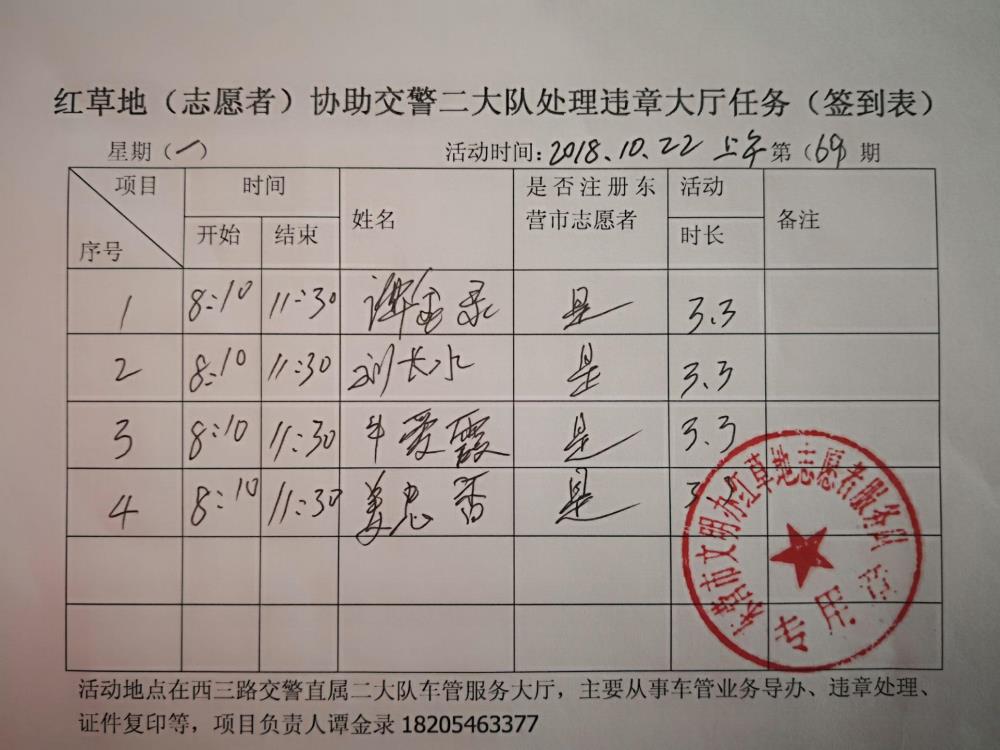 红草地（志愿者）协助交警二大队处理违章大厅任务（签到表）
星期（一） 活动时间:2018.10.22 上午 第（69）期
项目 时间 姓名 是否注册东营市志愿者 活动时长 备注
序号 开始 结束
1 8:10 11:30 谭金录 是 3.3
2 8:10 11:30 刘长水 是 3.3
3 8:10 11:30 牛爱霞 是 3.3
4 8:10 11:30 姜忠香 是
东营市文明办红草地志愿者服务队
专用章
活动地点在西三路交警直属二大队车管服务大厅，主要从事车管业务导办、违章处理、
证件复印等，项目负责人谭金录 18205463377